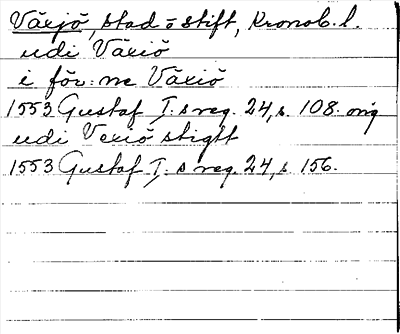 Växjö, stad o stift, Kronob. l.
udi Växiö
i för: ne Växiö
1553 Gustaf I:s reg. 24, s. 108. orig
udi Vexiö stigtt
1553 Gustaf I:s reg. 24, s 156.